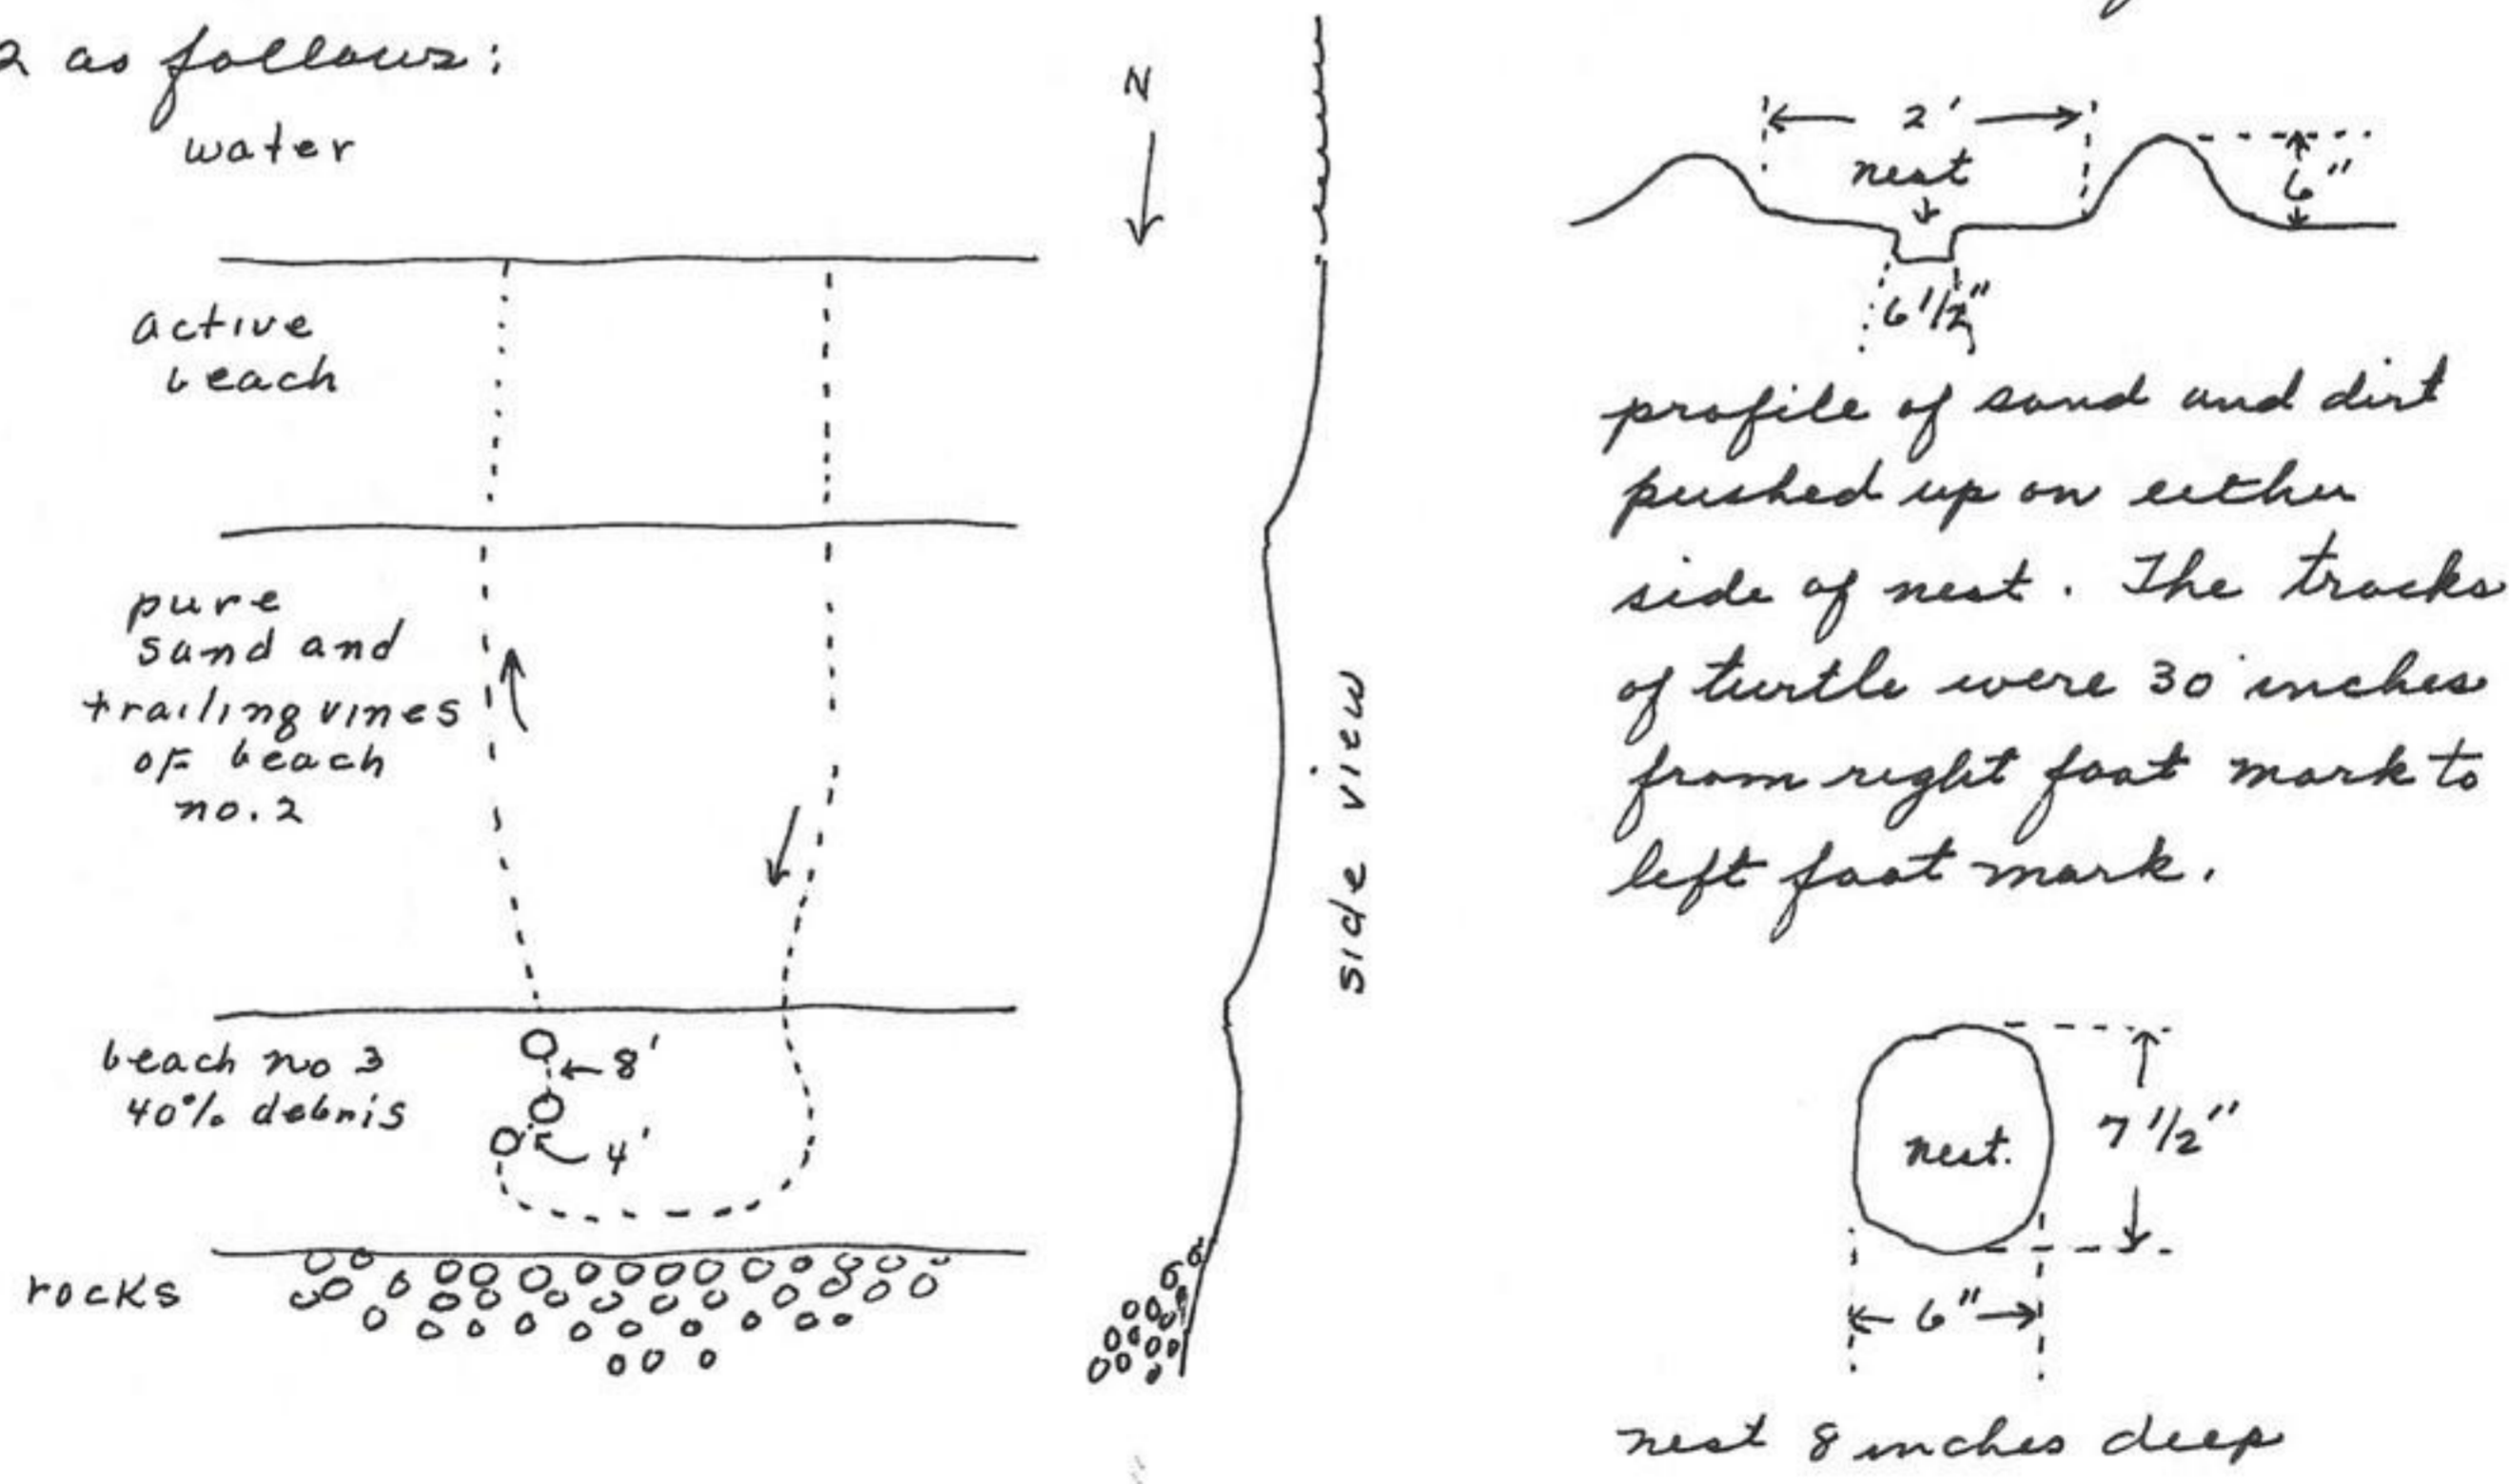 2 as follows:
water
N
active
beach
pure
sand and
trailing vines
of beach
no. 2
beach no 3
40% debris
8'
4'
rocks
side view
2'
nest
6"
6 1/2"
profile of sand and dirt
pushed up on either
side of nest. The tracks
of turtle were 30 inches
from right foot mark to
left foot mark.
nest.
7 1/2"
6"
nest 8 inches deep